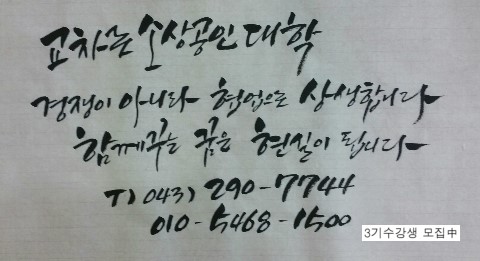 교차로 소상공인대학
경쟁이 아니라 협업으로 상생합니다
함께꾸는 꿈은 현실이 됩니다
T) 043) 290-7744
010-5468-1500
3기수강생 모집中